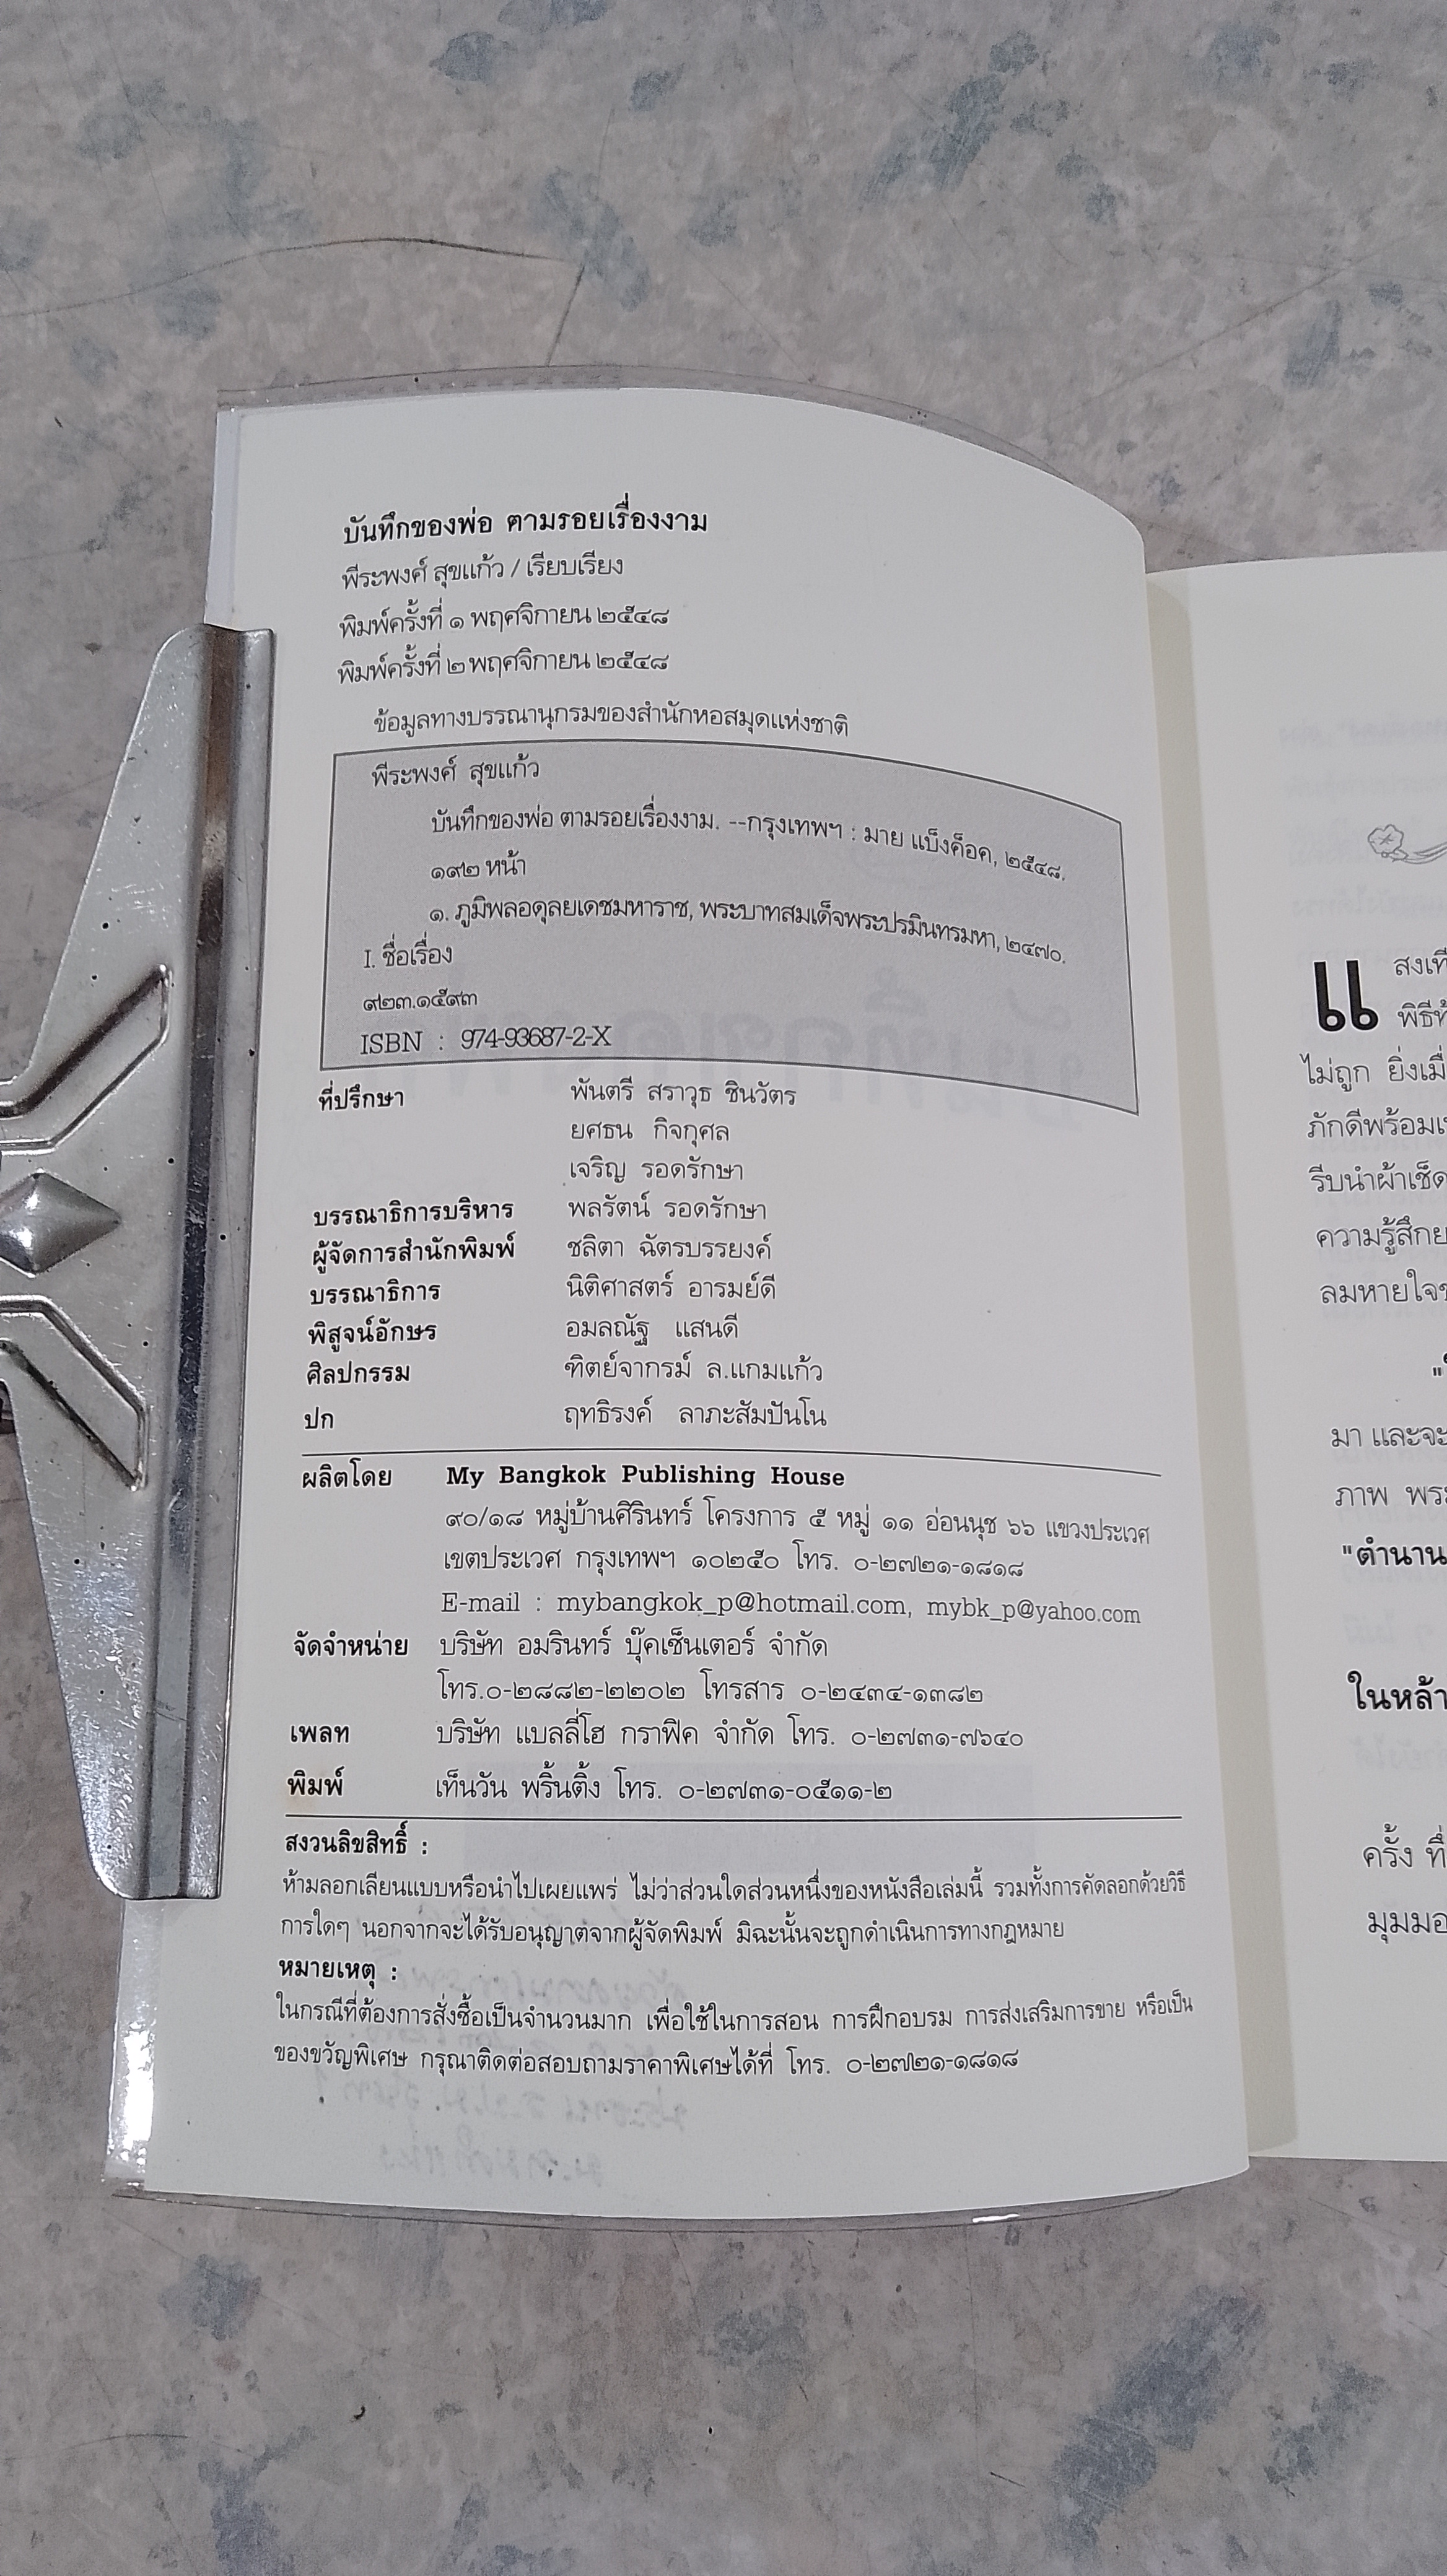 บันทึกของพ่อ ตามรอยเรื่องงาม
พีระพงศ์ สุขแก้ว / เรียบเรียง
พิมพ์ครั้งที่ ๑ พฤศจิกายน ๒๕๔๘
พิมพ์ครั้งที่ ๒ พฤศจิกายน ๒๕๔๘
ข้อมูลทางบรรณานุกรมของสำนักหอสมุดแห่งชาติ
พีระพงศ์ สุขแก้ว
บันทึกของพ่อ ตามรอยเรื่องงาม. --กรุงเทพฯ : มาย แบ็งค็อค, ๒๕๔๘.
๑๙๒ หน้า
๑. ภูมิพลอดุลยเดชมหาราช, พระบาทสมเด็จพระปรมินทรมหา, ๒๔๗๐.
I. ชื่อเรื่อง
๙๒๓.๑๕๙๓
ISBN : 974-93687-2-X
ที่ปรึกษา พันตรี สราวุธ ชินวัตร
ยศธน กิจกุศล
เจริญ รอดรักษา
บรรณาธิการบริหาร พลรัตน์ รอดรักษา
ผู้จัดการสำนักพิมพ์ ชลิตา ฉัตรบรรยงค์
บรรณาธิการ นิติศาสตร์ อารมย์ดี
พิสูจน์อักษร อมลณัฐ แสนดี
ศิลปกรรม ฑิตย์จากรม์ ล.แกมแก้ว
ปก ฤทธิรงค์ ลาภะสัมปันโน
ผลิตโดย My Bangkok Publishing House
๙๐/๑๘ หมู่บ้านศิรินทร์ โครงการ ๕ หมู่ ๑๑ อ่อนนุช ๖๖ แขวงประเวศ
เขตประเวศ กรุงเทพฯ ๑๐๒๕๐ โทร. ๐-๒๗๒๑-๑๘๑๘
E-mail : mybangkok_p@hotmail.com, mybk_p@yahoo.com
จัดจำหน่าย บริษัท อมรินทร์ บุ๊คเซ็นเตอร์ จำกัด
โทร.๐-๒๘๘๒-๒๒๐๒ โทรสาร ๐-๒๔๓๔-๑๓๘๒
เพลท บริษัท แบลลี่โฮ กราฟิค จำกัด โทร. ๐-๒๗๓๑-๗๖๔๐
พิมพ์ เท็นวัน พริ้นติ้ง โทร. ๐-๒๗๓๑-๐๕๑๑-๒
สงวนลิขสิทธิ์ :
ห้ามลอกเลียนแบบหรือนำไปเผยแพร่ ไม่ว่าส่วนใดส่วนหนึ่งของหนังสือเล่มนี้ รวมทั้งการคัดลอกด้วยวิธี
การใดๆ นอกจากจะได้รับอนุญาตจากผู้จัดพิมพ์ มิฉะนั้นจะถูกดำเนินการทางกฎหมาย
หมายเหตุ :
ในกรณีที่ต้องการสั่งซื้อเป็นจำนวนมาก เพื่อใช้ในการสอน การฝึกอบรม การส่งเสริมการขาย หรือเป็น
ของขวัญพิเศษ กรุณาติดต่อสอบถามราคาพิเศษได้ที่ โทร. ๐-๒๗๒๑-๑๘๑๘
แสงเที
ไม่ถูก ยิ่งเมื่
ภักดีพร้อม
รีบนำผ้าเช็ด
ความรู้สึก
ลมหายใจ
มา และจะ
ภาพ พระ
"ตำนาน
ในหล้า
ครั้ง ที่
มุมมอ